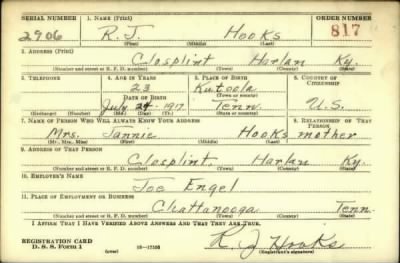 SERIAL NUMBER 1. NAME (Print) ORDER NUMBER
2906 R. J. Hooks 817
(First) (Middle) (Last)
2. ADDRESS (Print)
Closplint Harlan Ky.
(Number and street or R. F. D. number) (Town) (County) (State)
3. TELEPHONE 4. AGE IN YEARS 5. PLACE OF BIRTH 6. COUNTRY OF CITIZENSHIP
23 Kutoola
DATE OF BIRTH (Town or county)
July 24 - 1917 Tenn. U.S.
(Exchange) (Number) (Mo.) (Day) (Yr.) (State or country)
7. NAME OF PERSON WHO WILL ALWAYS KNOW YOUR ADDRESS 8. RELATIONSHIP OF THAT PERSON
Mrs. Jannie Hooks mother
(Mr., Mrs., Miss) (First) (Middle) (Last)
9. ADDRESS OF THAT PERSON
Closplint, Harlan Ky.
(Number and street or R. F. D. number) (Town) (County) (State)
10. EMPLOYER'S NAME
Joe Engel
11. PLACE OF EMPLOYMENT OR BUSINESS
Chattanooga Tenn
(Number and street or R. F. D. number) (Town) (County) (State)
I AFFIRM THAT I HAVE VERIFIED ABOVE ANSWERS AND THAT THEY ARE TRUE.
REGISTRATION CARD
D. S. S. Form 1 (over) 16—17105 R. J Hooks